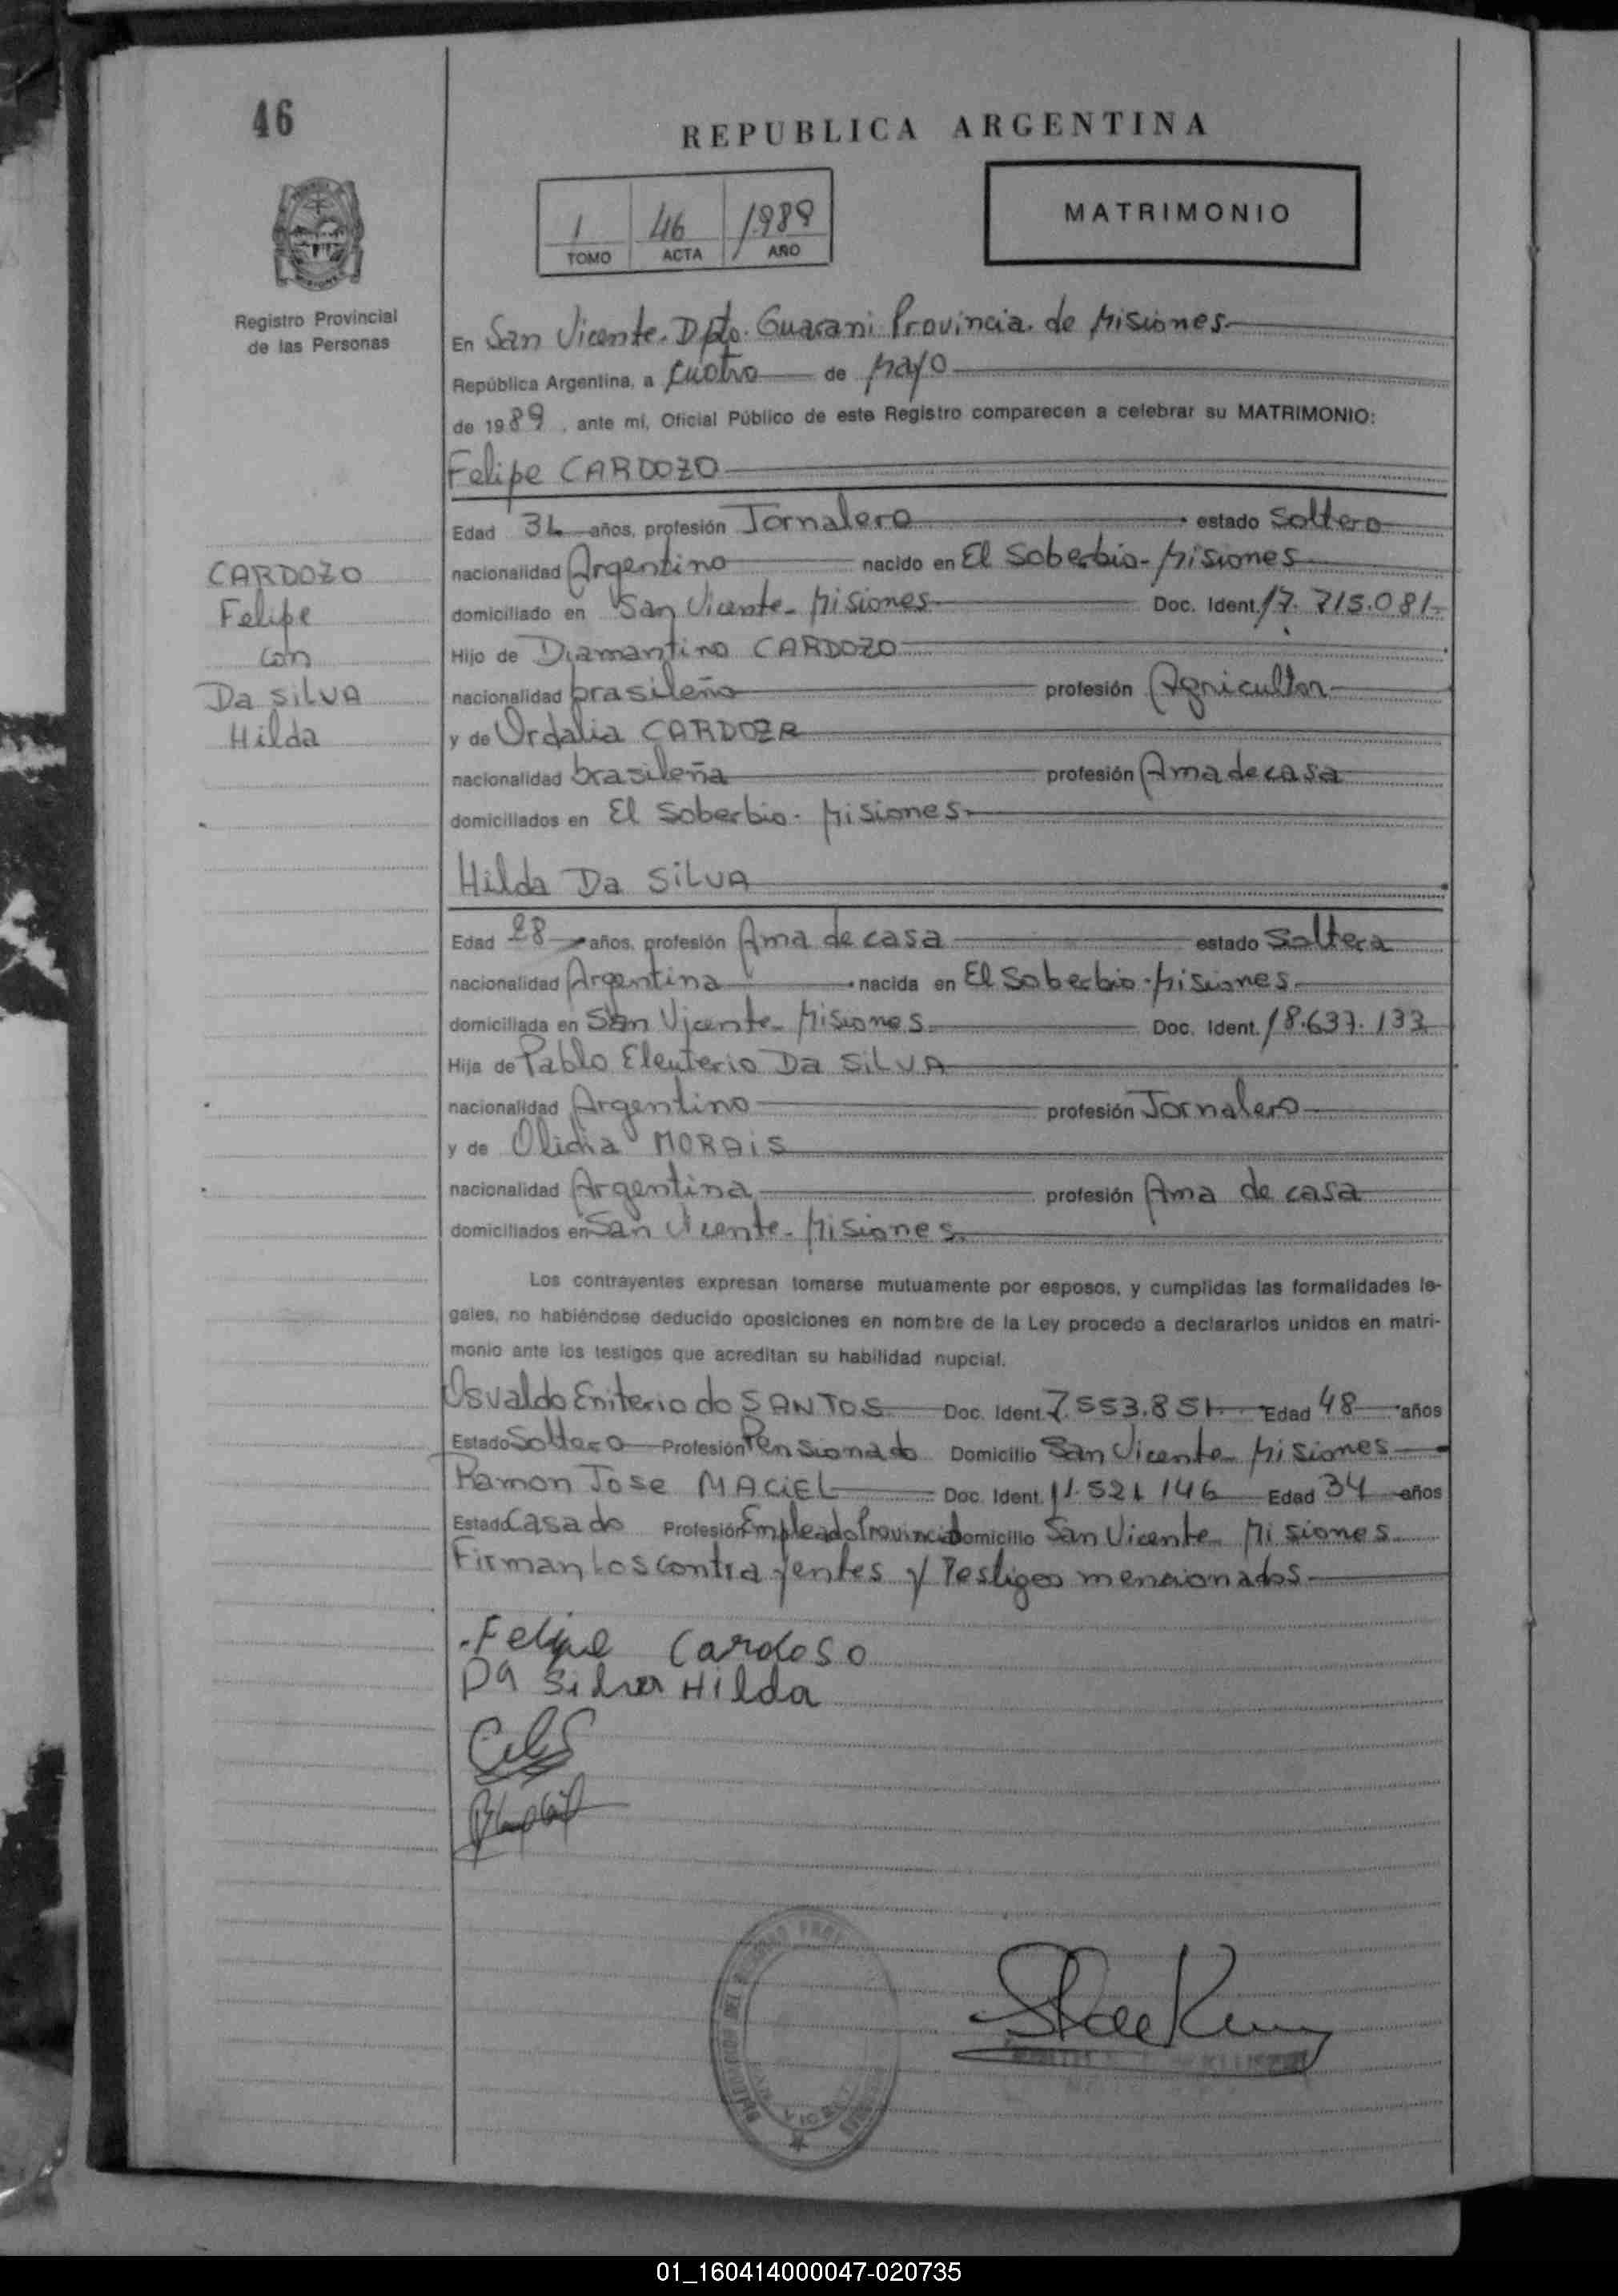 46
REPUBLICA ARGENTINA
1 46 1989
TOMO ACTA AÑO
MATRIMONIO
Registro Provincial
de las Personas
En San Vicente. Dpto. Guarani Provincia de Misiones
República Argentina, a cuatro de Mayo
de 1989, ante mí, Oficial Público de este Registro comparecen a celebrar su MATRIMONIO:
Felipe CARDOZO
Edad 31 años, profesión Jornalero estado Soltero
nacionalidad Argentino nacido en El Soberbio - Misiones
domiciliado en San Vicente - Misiones Doc. Ident. 17.715.081
Hijo de Diamantino CARDOZO
nacionalidad brasileño profesión Agricultor
y de Ordalia CARDOZA
nacionalidad brasileña profesión Ama de casa
domiciliados en El Soberbio - Misiones
CARDOZO
Felipe
con
Da SILVA
Hilda
Hilda Da SILVA
Edad 28 años, profesión Ama de casa estado Soltera
nacionalidad Argentina nacida en El Soberbio - Misiones
domiciliada en San Vicente - Misiones Doc. Ident. 18.637.133
Hija de Pablo Eleuterio Da SILVA
nacionalidad Argentino profesión Jornalero
y de Olidia MORAIS
nacionalidad Argentina profesión Ama de casa
domiciliados en San Vicente - Misiones
Los contrayentes expresan tomarse mutuamente por esposos, y cumplidas las formalidades le-
gales, no habiéndose deducido oposiciones en nombre de la Ley procedo a declararlos unidos en matri-
monio ante los testigos que acreditan su habilidad nupcial.
Osvaldo Eniterio do SANTOS Doc. Ident. 7.553.851 Edad 48 años
Estado Soltero Profesión Pensionado Domicilio San Vicente - Misiones
Ramon Jose MACIEL Doc. Ident. 11.521.146 Edad 34 años
Estado Casado Profesión Empleado Provincial Domicilio San Vicente - Misiones
Firman los contrayentes y Testigos mencionados
Felipe Cardoso
Da Silva Hilda
01_160414000047-020735